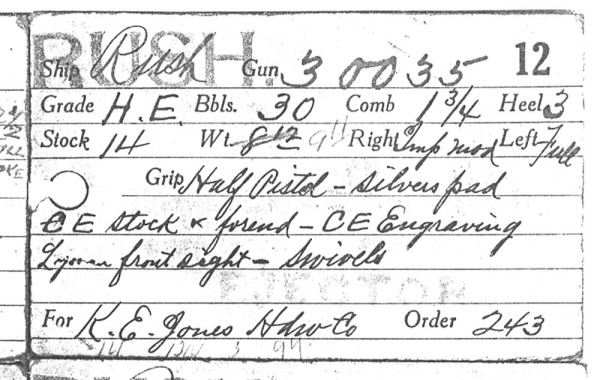 RUSH.
Ship Rush Gun 3 00035 12
Grade H.E. Bbls. 30 Comb 1 3/4 Heel 3
Stock 14 Wt 8 12 9 11 Right Imp mod Left Full
Grip Half Pistol - silvers pad
CE stock & forend - CE Engraving
Lyman front sight - Swivels
EJECTOR
For K. E. Jones Hdw Co Order 243